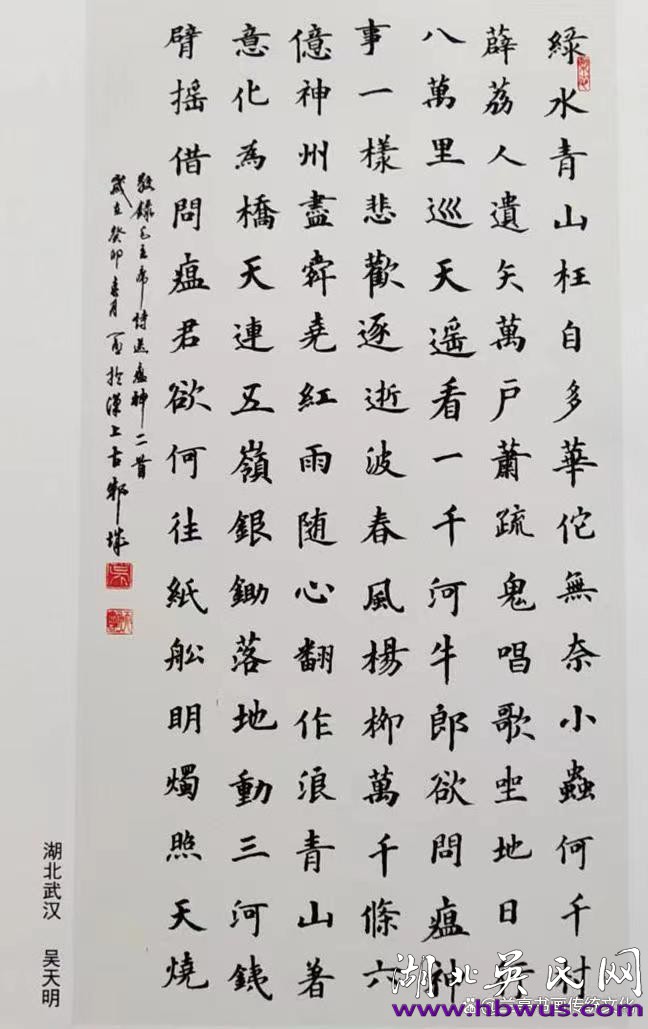 綠水青山枉自多華佗無奈小蟲何千村
薜荔人遺矢萬戶蕭疏鬼唱歌坐地日行
八萬里巡天遥看一千河牛郎欲問瘟神
事一樣悲歡逐逝波春風楊柳萬千條六
億神州盡舜堯紅雨随心翻作浪青山著
意化為橋天連五嶺銀鋤落地動三河銕
臂摇借問瘟君欲何往紙舩明燭照天燒
敬錄毛主席诗送瘟神二首
歲在癸卯春月於漢上古邾城
湖北武汉 吴天明
湖北吴氏网
书画传统文化
www.hbwus.com